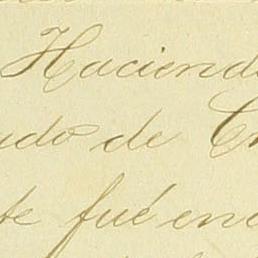 Haciend
ado de
te fué en